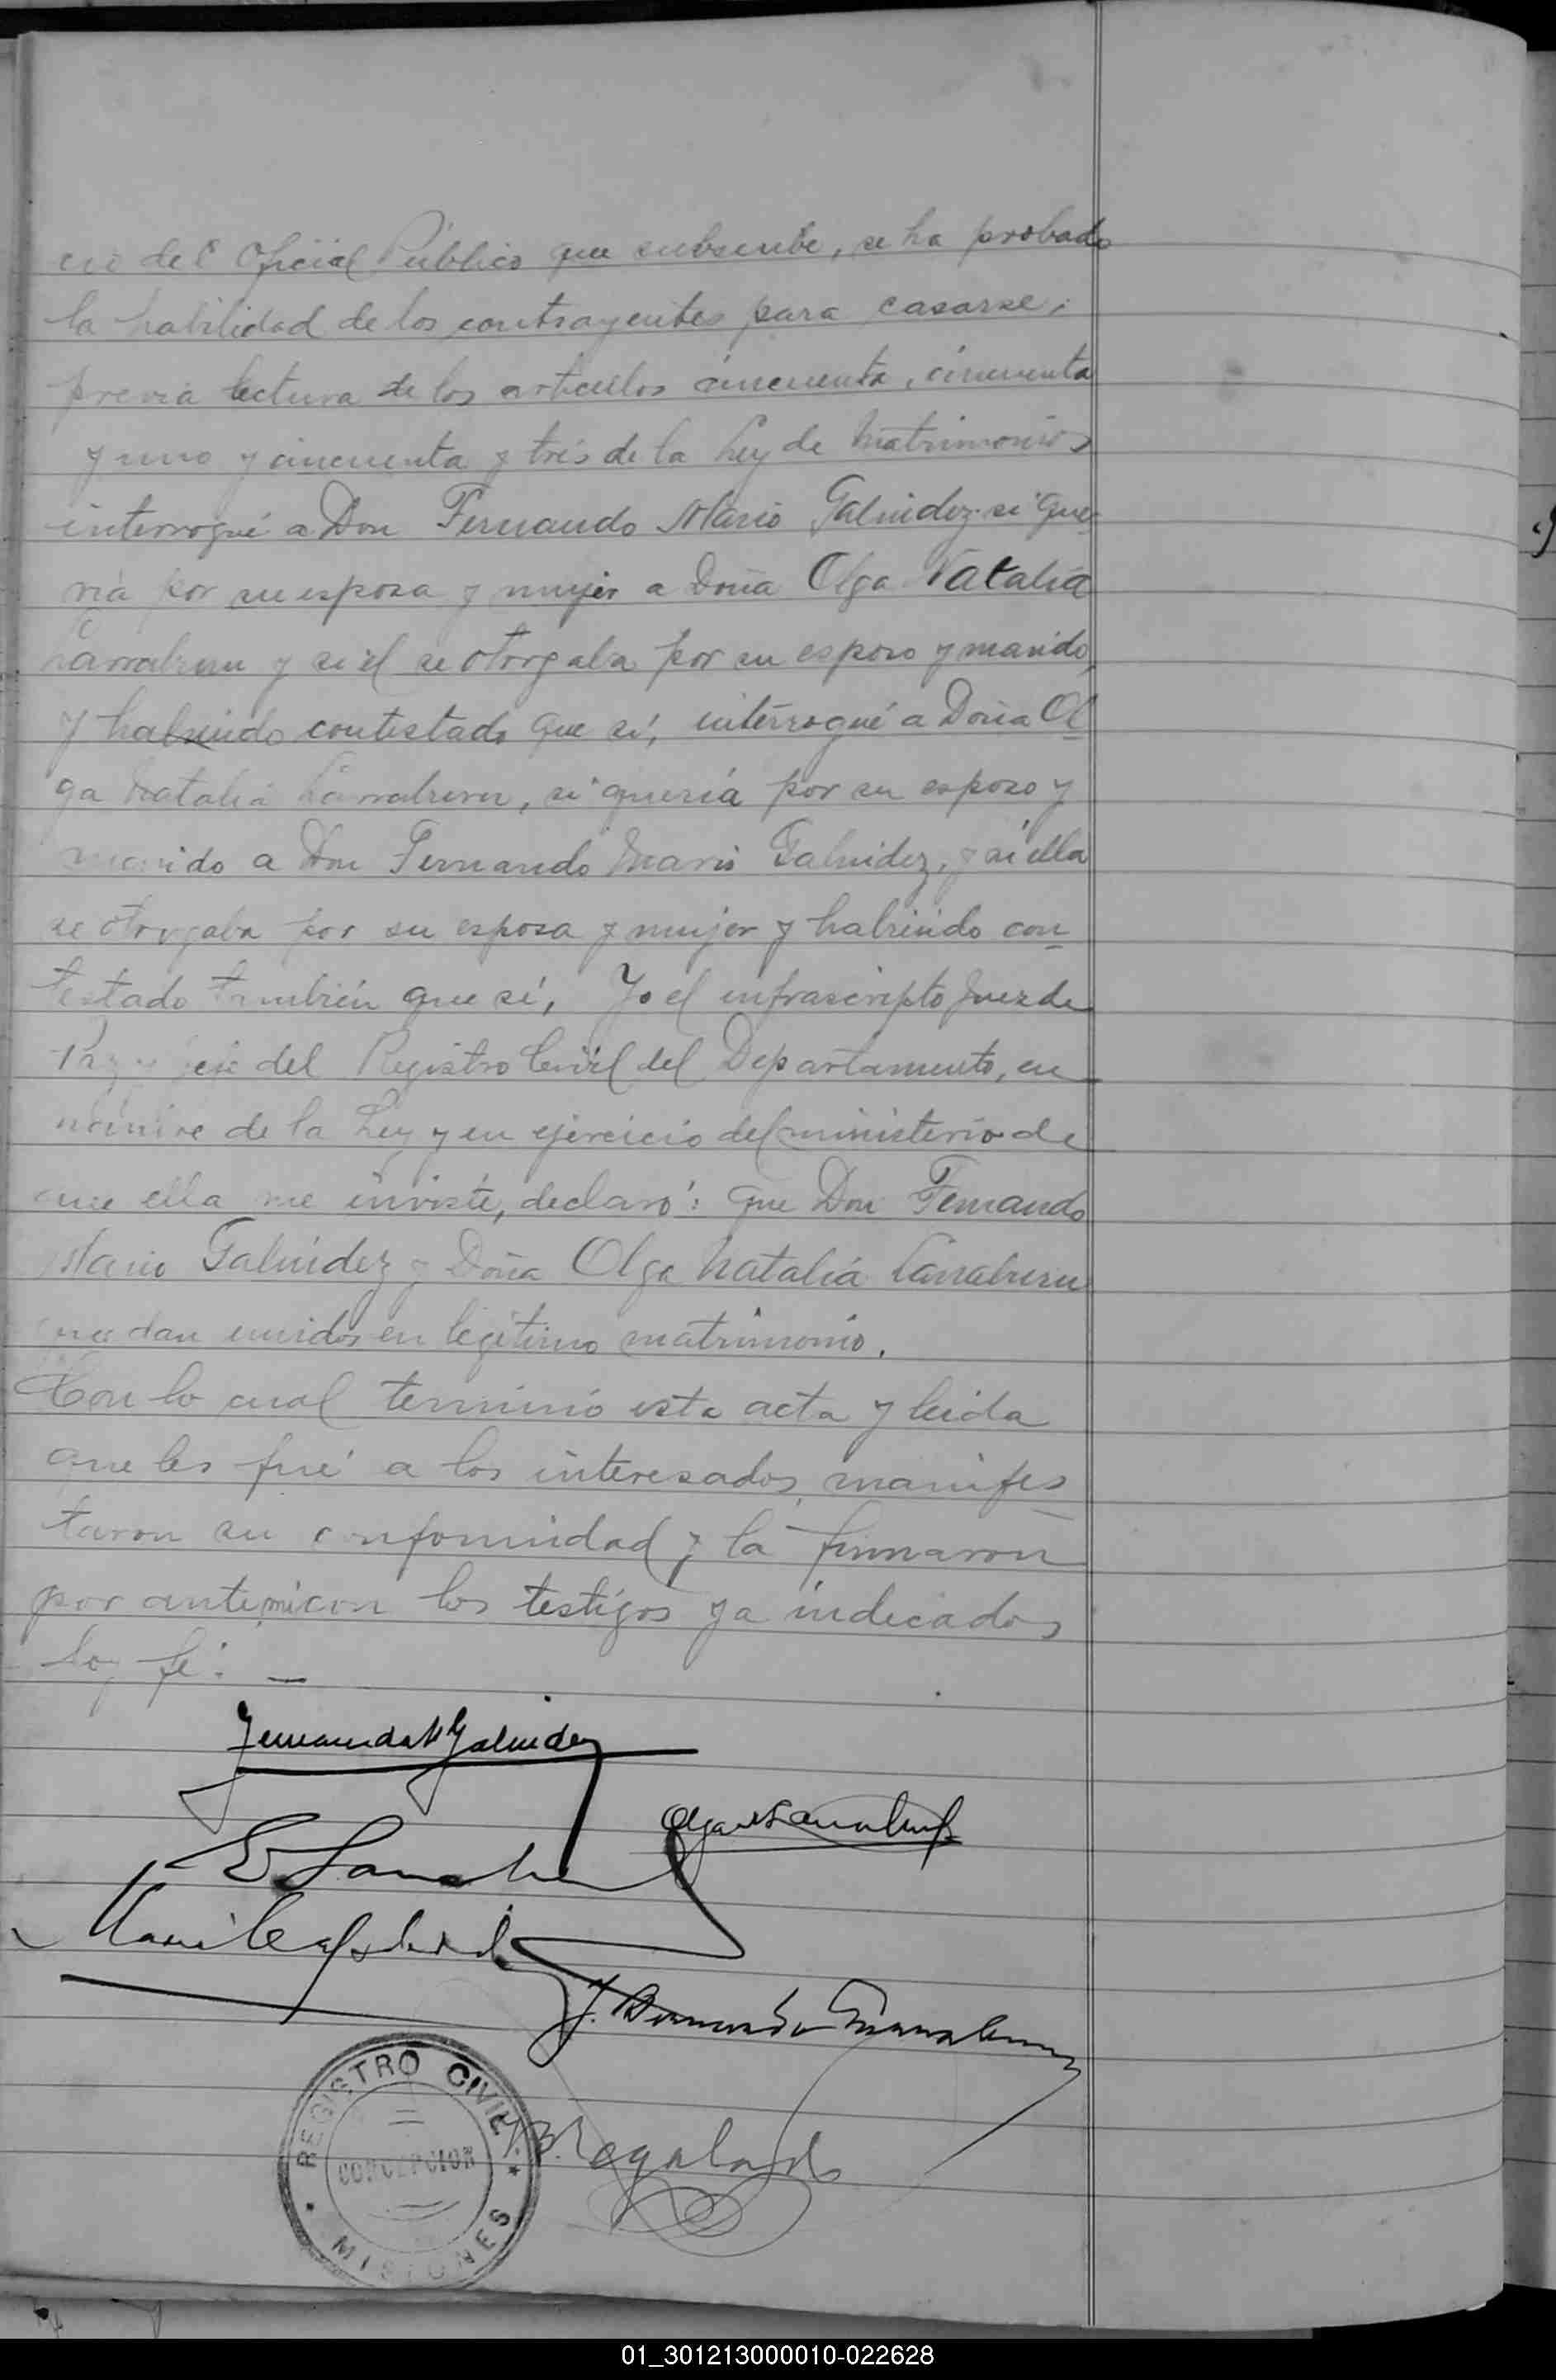 cio del Oficial Público que subscribe, se ha probado
la habilidad de los contrayentes para casarse;
previa lectura de los artículos cincuenta, cincuenta
y uno y cincuenta y trés de la Ley de Matrimonios
interrogué a Don Fernando Mario Galmidez si que-
ría por su esposa y mujer a Doña Olga Natalia
Larraburu y si él se otorgaba por su esposo y marido,
y habiendo contestado que sí, interrogué a Doña Ol
ga Natalia Larraburu, si quería por su esposo y
marido a Don Fernando Mario Galmidez, y si ella
se otorgaba por su esposa y mujer y habiendo con
testado también que sí, Yo el infrascripto Juez de
Paz y Jefe del Registro Civil del Departamento, en
nombre de la Ley y en ejercicio del ministerio de
que ella me inviste, declaro: que Don Fernando
Mario Galmidez y Doña Olga Natalia Larraburu
quedan unidos en legítimo matrimonio.
Con lo cual terminó esta acta y leida
que les fué a los interesados, manifes
taron su conformidad y la firmaron
por antemi con los testigos ya indicados
doy fé. —
Fernando M Galmidez
REGISTRO CIVIL
CONCEPCION
MISIONES
01_301213000010-022628